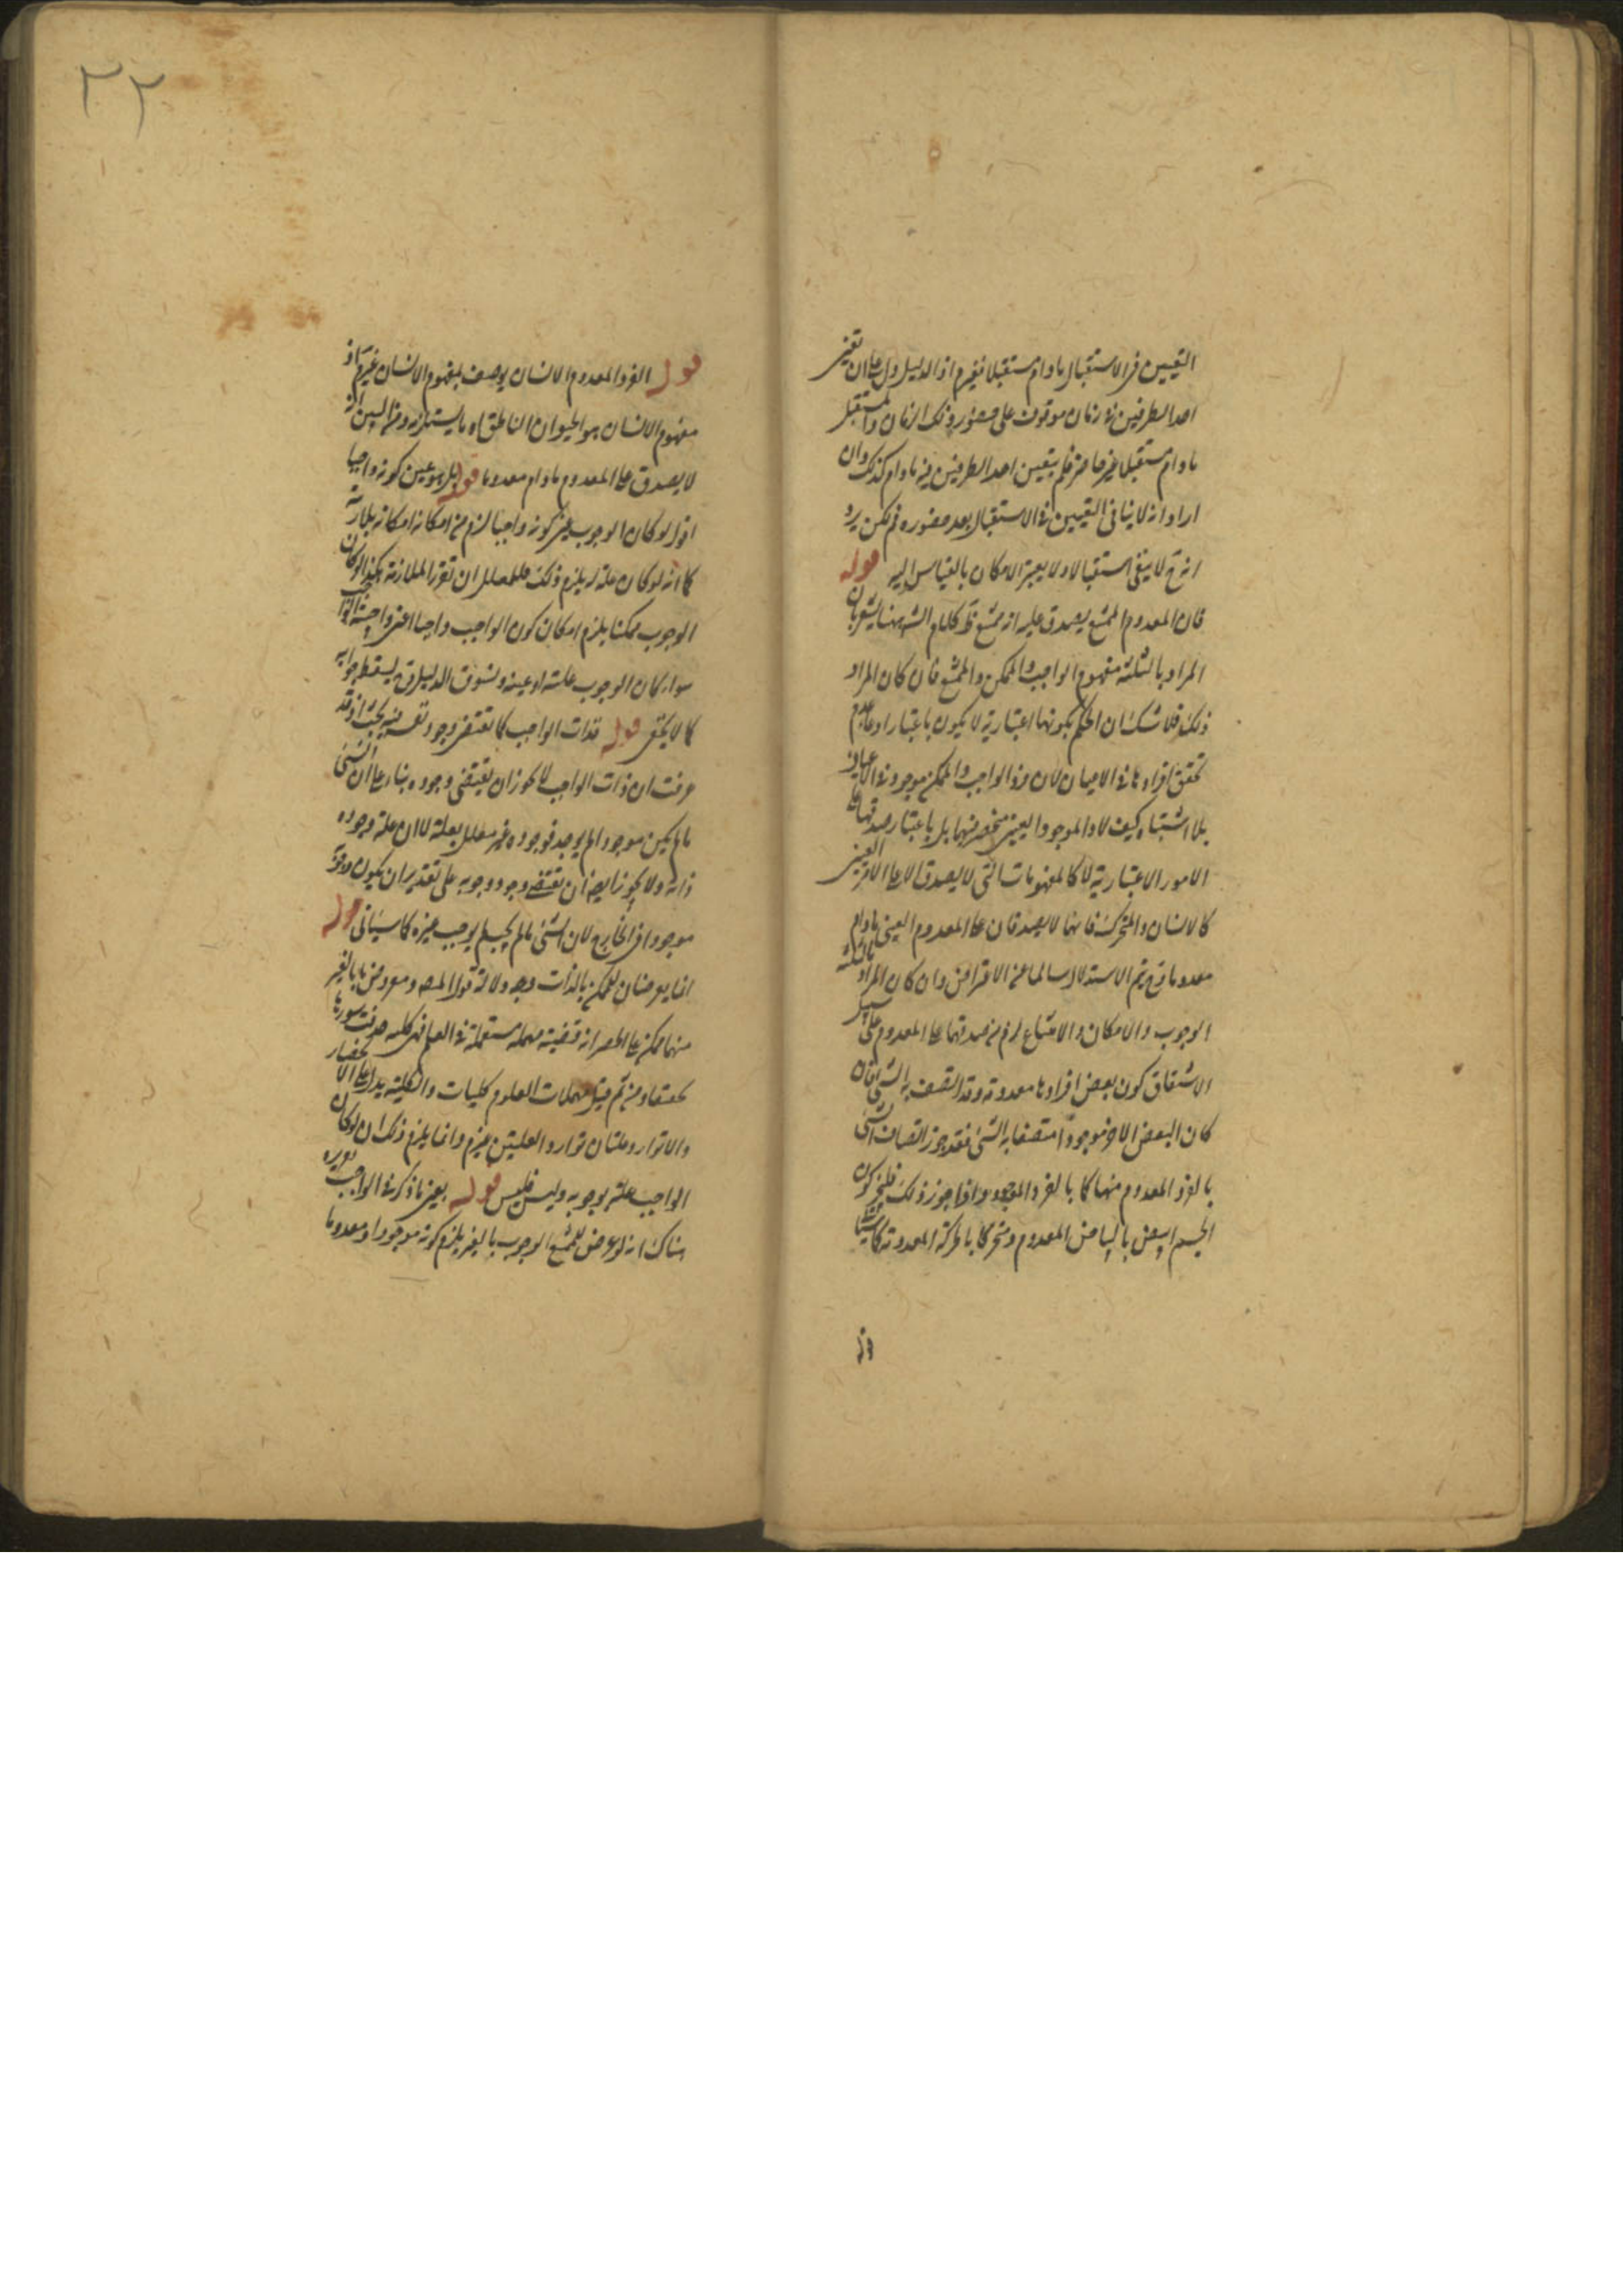 التعيين في الاستقبال مادام مستقبلا فغير م اذ الدليل دل على ان تعين
احد الطرفين في زمان موقوف على حضور ذلك الزمان والمستقبل
مادام مستقبلا غير حاضر فلم يتعين احد الطرفين فيه مادام كذلك وان
اراد انه لا ينافي التعيين في الاستقبال بعد حضوره فم لكن يرد
انه ح لا يبقى استقبالا ولا يعتبر الامكان بالقياس اليه قوله
فان المعدوم الممتنع يصدق عليه انه ممتنع كلام الش هنا يشعر بان
المراد بالثلثة مفهوم الواجب والممكن والممتنع فان كان المراد
ذلك فلا شك ان الحكم بكونها اعتبارية لا يكون باعتبار عدم
تحقق افرادها في الاعيان لان فرد الواجب والممكن موجود في الاعيان
بلا اشتباه كيف لا والموجود العيني منحصر فيهما بل باعتبار صدقها على
الامور الاعتبارية لا كالمفهومات التي لا يصدق الا على الامر العيني
كالانسان والمتحرك فانهما لا يصدقان على المعدوم العيني مادام
معدوما فح يتم الاستدلال سالما عن الاعتراض وان كان المراد بالثلثة
الوجوب والامكان والامتناع لزم من صدقها على المعدوم على سبيل
الاشتقاق كون بعض افرادها معدومة وقد اتصف به الشئ فان
كان البعض الاخر موجودا متصفا به الشئ فقد جوز اتصاف الشئ
بالفرد المعدوم منها كما بالفرد الموجود واذا جوز ذلك فليجز كون
الجسم ابيض بالبياض المعدوم ومتحركا بالحركة المعدومة كما سيأتي
وفي
٣٢
قوله الفرد المعدوم الانسان يوصف بمفهوم الانسان غير م اذ
مفهوم الانسان هو الحيوان الناطق او ما يستلزمه ومن البين انه
لا يصدق على المعدوم مادام معدوما قوله بل هو عين كونه واجبا
اقول لو كان الوجوب عين كونه واجبا لزم من امكانه امكانه بلا ريبة
كما انه لو كان علة له يلزم ذلك ان تقرر الملازمة هكذا لو كان
الوجوب ممكنا يلزم امكان كون الواجب واجبا اعني واجبيته
سواء كان الوجوب علته او عينه ونسوق الدليل فح يسقط جوابه
كما لا يخفى قوله فذات الواجب كما تقتضي وجود نفسه بحث اذ قد
عرفت ان ذات الواجب لا يجوز ان يقتضي وجوده بناء على ان الشئ
مالم يكن موجودا لم يوجد فوجوده غير معلل بعلة لا ان علة وجوده
ذاته ولا يجوز ايضا ان تقتضي وجود وجوبه على تقدير ان يكون
موجودا في الخارج لان الشئ مالم يجب لم يوجب غيره كما سيأتي قوله
انما يعرضان للممكن بالذات وجه دلالة قول المص ومعروض ما بالغير
منهما ممكن على الحصر انه قضية مهملة مستعملة في العلم فهي كلية حذفت سورها
ومن ثم قيل مهملات العلوم كليات والكلية يدل على الانحصار
والا توارد علتان توارد العلتين غير م وانما يلزم ذلك ان لو كان
الواجب علة لوجوبه وليس فليس قوله يعني ما ذكر في الواجب
هناك انه لو عرض للممتنع الوجوب بالغير يلزم كونه موجودا ومعدوما